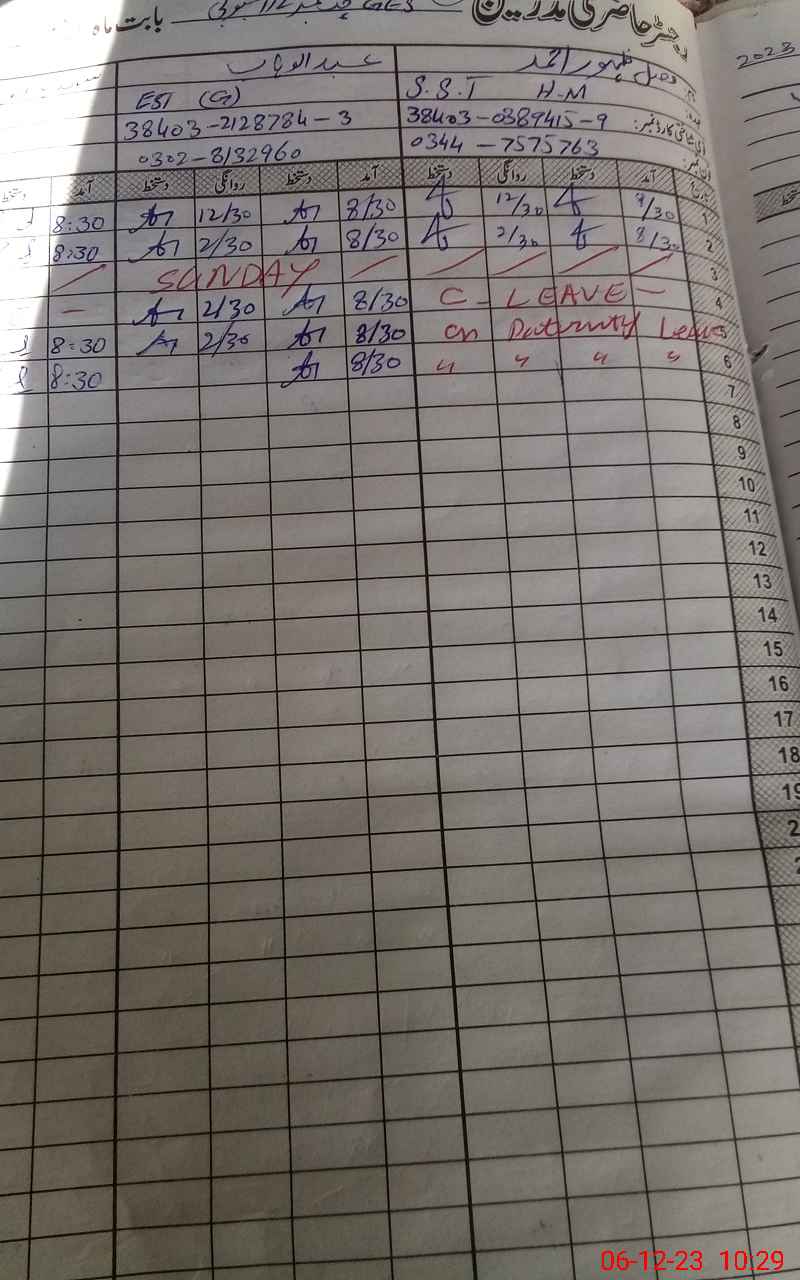 رجسٹر حاضری مدرسین GES بابت ماہ
2023
فضل ظہور احمد عبدالوہاب
S.S.T H.M EST (G)
38403-0389415-9 38403-2128784-3
0344-7575763 0302-8132960
آمد دستخط روانگی دستخط آمد دستخط روانگی دستخط آمد
1 8/30 12/30 8/30 12/30 8:30
2 8/30 2/30 8/30 2/30 8:30
3 SUNDAY
4 C-LEAVE- 8/30 2/30 -
on Paternity Leave 8/30 2/30 8:30
6 " " " " 8/30 8:30
7
8
9
10
11
12
13
14
15
16
17
18
19
06-12-23 10:29